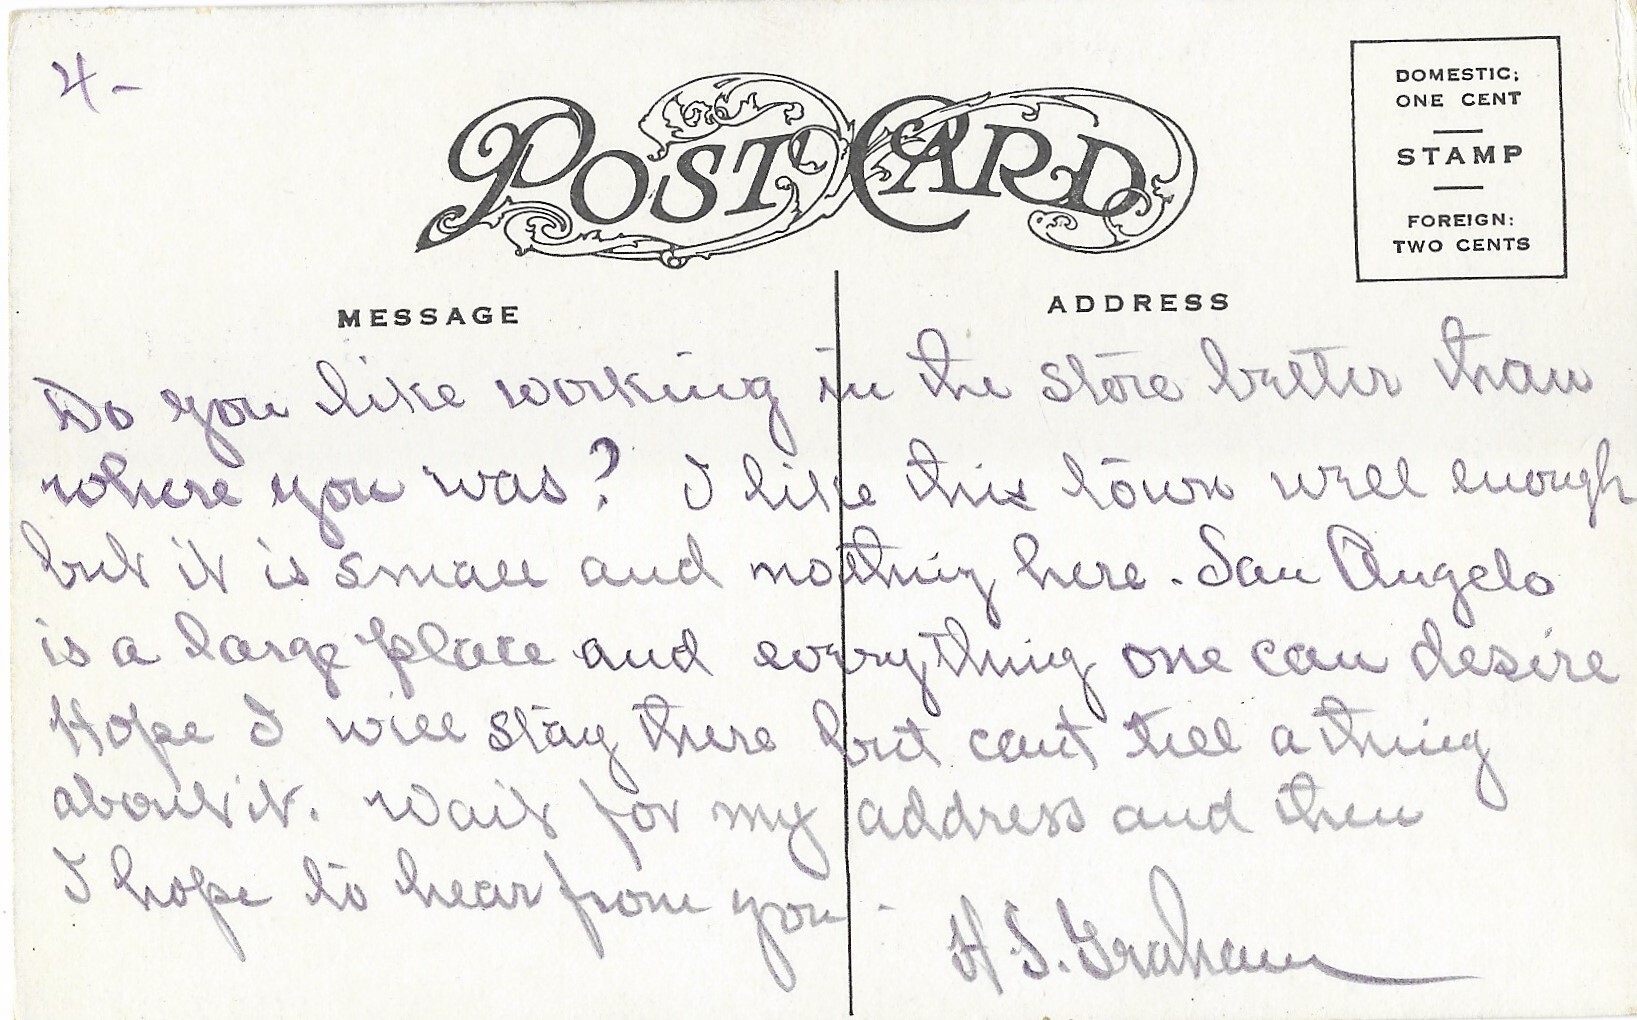 4-
POST CARD
DOMESTIC;
ONE CENT
STAMP
FOREIGN:
TWO CENTS
MESSAGE
ADDRESS
Do you like working in the store better than
where you was? I like this town well enough
but it is small and nothing here. San Angelo
is a large place and everything one can desire
Hope I will stay there but can't tell a thing
about it. Wait for my address and then
I hope to hear from you -
H S. Graham